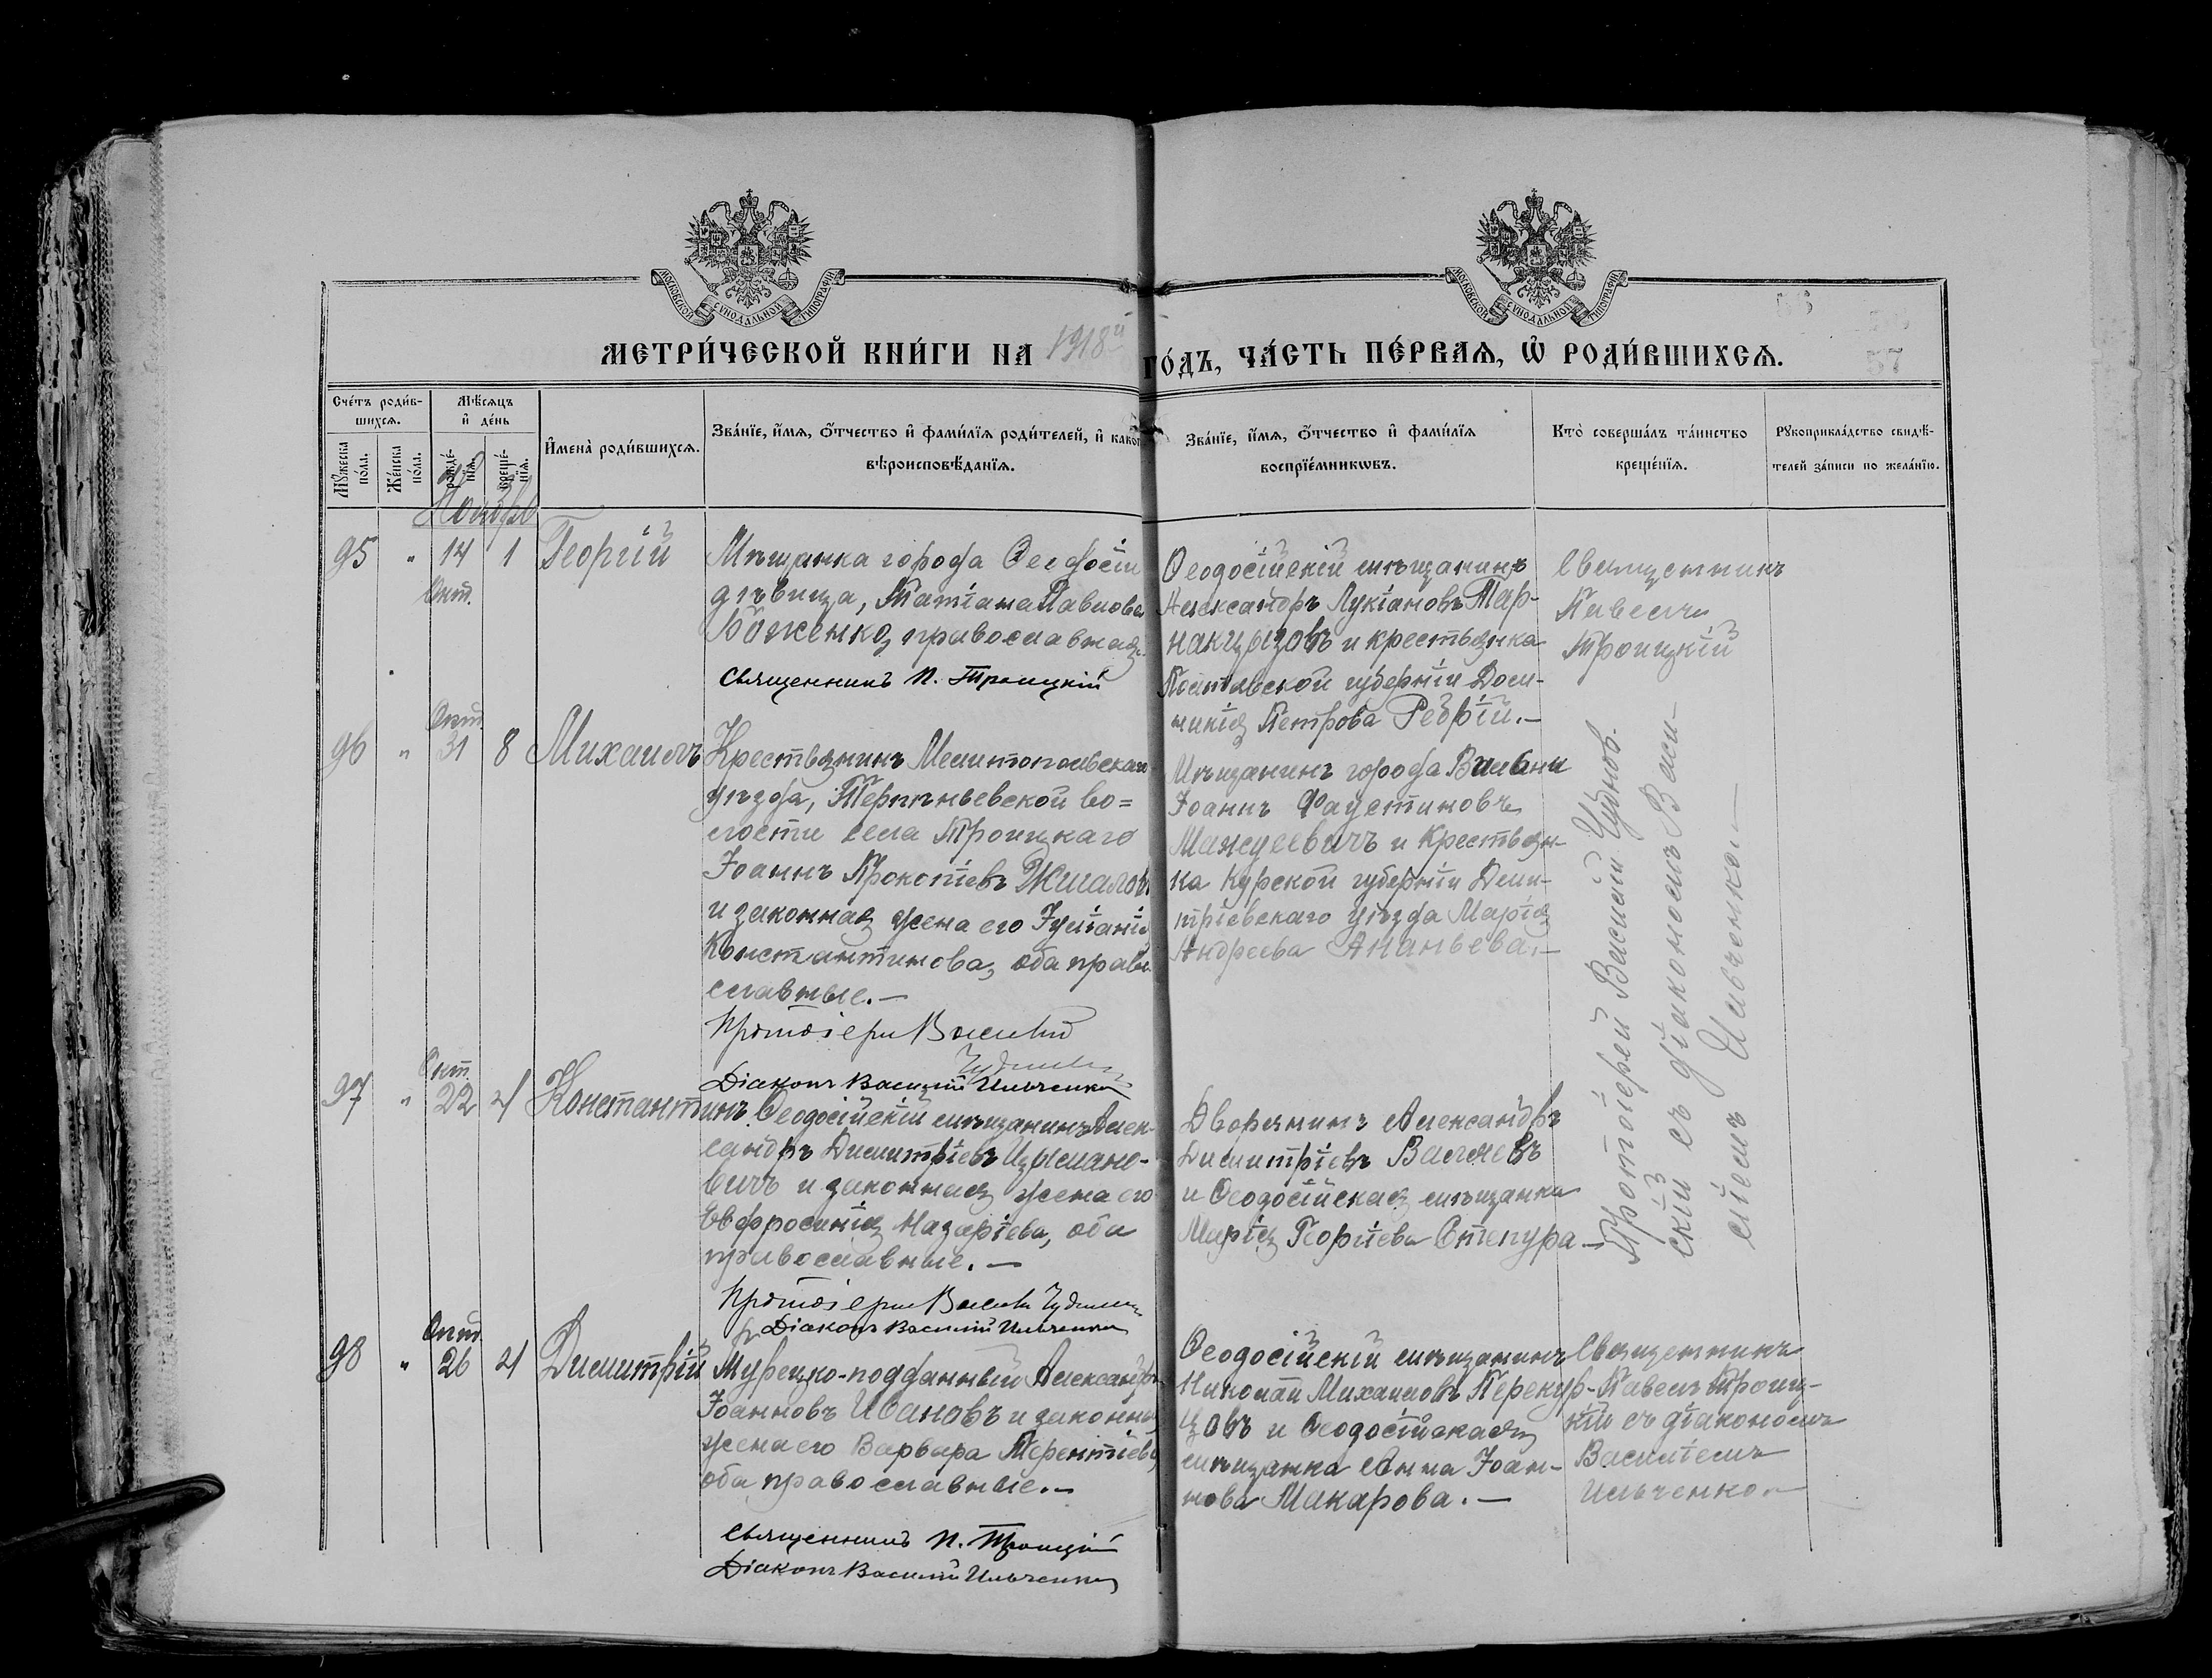 МОСКОВСКОЙ СѴНОДАЛЬНОЙ ТИПОГРАФІИ
МОСКОВСКОЙ СѴНОДАЛЬНОЙ ТИПОГРАФІИ
МЕТРИ́ЧЕСКОЙ КНИ́ГИ НА 1918й ГО́ДЪ, ЧА́СТЬ ПЕ́РВАЯ, Ѡ҆ РОДИ́ВШИХСѦ.
57
Сче́тъ роди́в-
шихсѧ.
Мꙋжеска по́ла.
Же́нска по́ла.
Мѣ́сѧцъ
и҆ де́нь
рожде́-
нїѧ.
креще́-
нїѧ.
И҆мена̀ роди́вшихсѧ.
Зва́нїе, и҆́мѧ, ѻ҆́тчество и҆ фами́лїѧ роди́телей, и҆ како́гѡ
вѣроисповѣ́данїѧ.
Зва́нїе, и҆́мѧ, ѻ҆́тчество и҆ фами́лїѧ
воспрїе́мникѡвъ.
Кто̀ соверша́лъ та́инство
креще́нїѧ.
Рꙋкоприкла́дство свидѣ́-
телей за́писи по жела́нїю.
Ноябрь
95 " 14 1 Георгій
Окт.
Мѣщанка города Ѳеодосіи
дѣвица, Татіана Павлова
Боженко, православная.
Священникъ П. Троицкій
Ѳеодосійскій мѣщанинъ
Александръ Лукіановъ Тар-
накцызовъ и крестьянка
Полтавской губерніи Дом-
никія Петрова Редрій.–
Священникъ
Павелъ
Троицкій
Окт.
96 " 31 8 Михаилъ
Крестьянинъ Мелитопольскаго
уѣзда, Терпѣньевской во=
лости села Троицкаго
Іоаннъ Прокопіевъ Жигаловъ
и законная жена его Іуліанія
Константинова, оба право
славные.–
Протоіерей Василій
Діаконъ Василій Ильченко
Мѣщанинъ города Вильны
Іоаннъ Фаустиновъ
Манцеевичъ и Крестьян-
ка Курской губерніи Дми-
тріевскаго уѣзда Марія
Андреева Ананьева.–
Протоіерей Василій Чудинов-
скій съ діакономъ Васи-
ліемъ Ильченко.–
Окт.
97 " 22 4 Константинъ
Ѳеодосійскій мѣщанинъ Алек-
сандръ Димитріевъ Цырмано-
вичъ и законная жена его
Евфросинія Назаріева, оба
православные.–
Протоіерей Василій
Діаконъ Василій Ильченко
Дворянинъ Александръ
Димитріевъ
и Ѳеодосійская мѣщанка
Марія Георгіева Степура–
Окт.
98 " 26 4 Димитрій
Турецко-подданный Александръ
Іоанновъ Ивановъ и законная
жена его Варвара Терентіева
оба православные.–
Священникъ П. Троицкій
Діаконъ Василій Ильченко
Ѳеодосійскій мѣщанинъ
Николай Михаиловъ Перекур-
цовъ и Ѳеодосійская
мѣщанка Анна Іоан-
нова Макарова.–
Священникъ
Павелъ Троиц-
кій съ діакономъ
Василіемъ
Ильченко.–